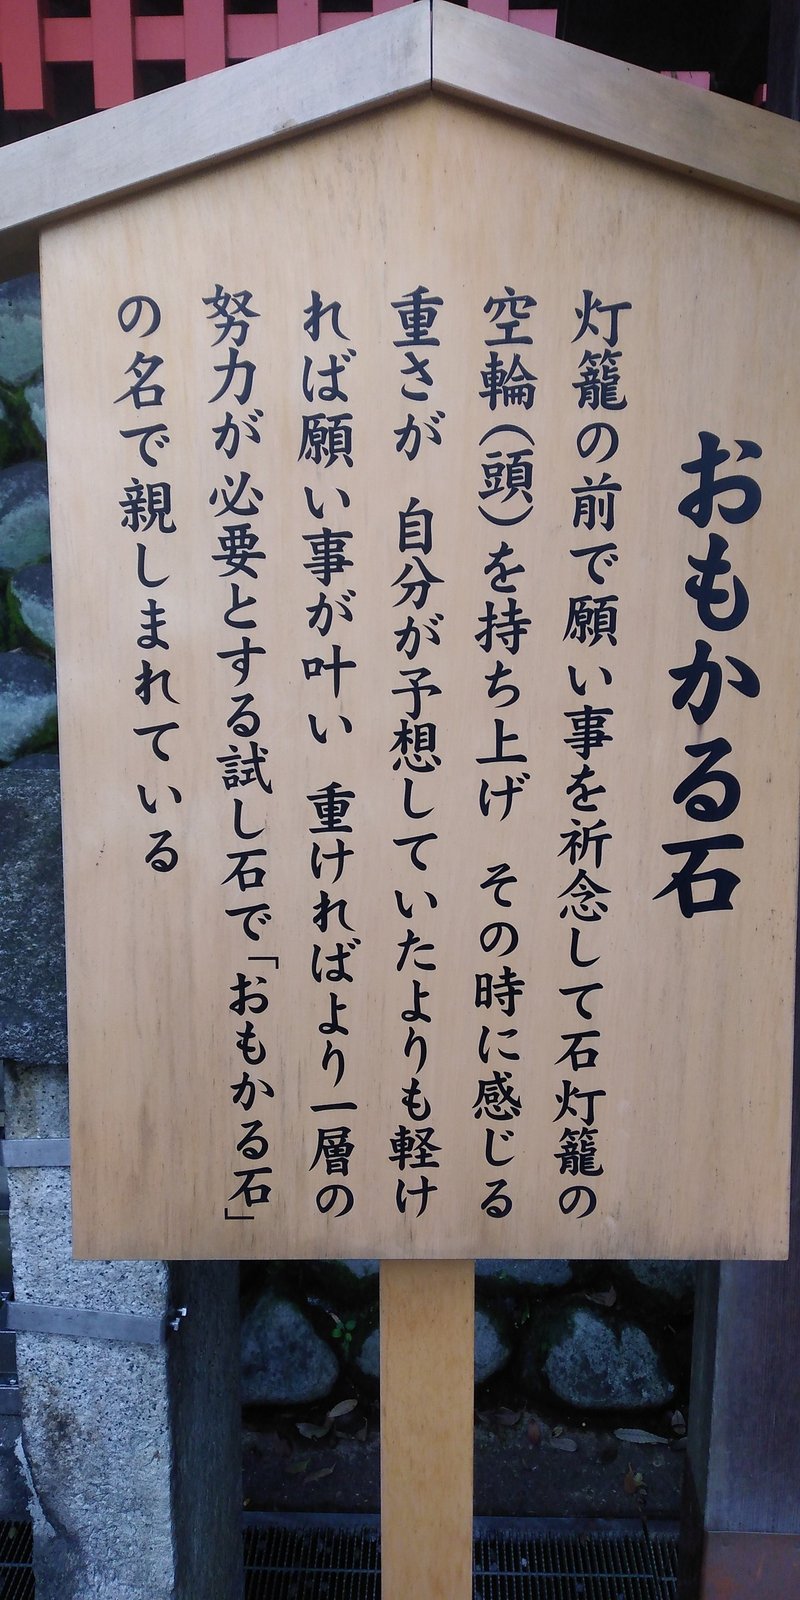 おもかる石
灯籠の前で願い事を祈念して石灯籠の
空輪（頭）を持ち上げ　その時に感じる
重さが　自分が予想していたよりも軽け
れば願い事が叶い　重ければより一層の
努力が必要とする試し石で「おもかる石」
の名で親しまれている